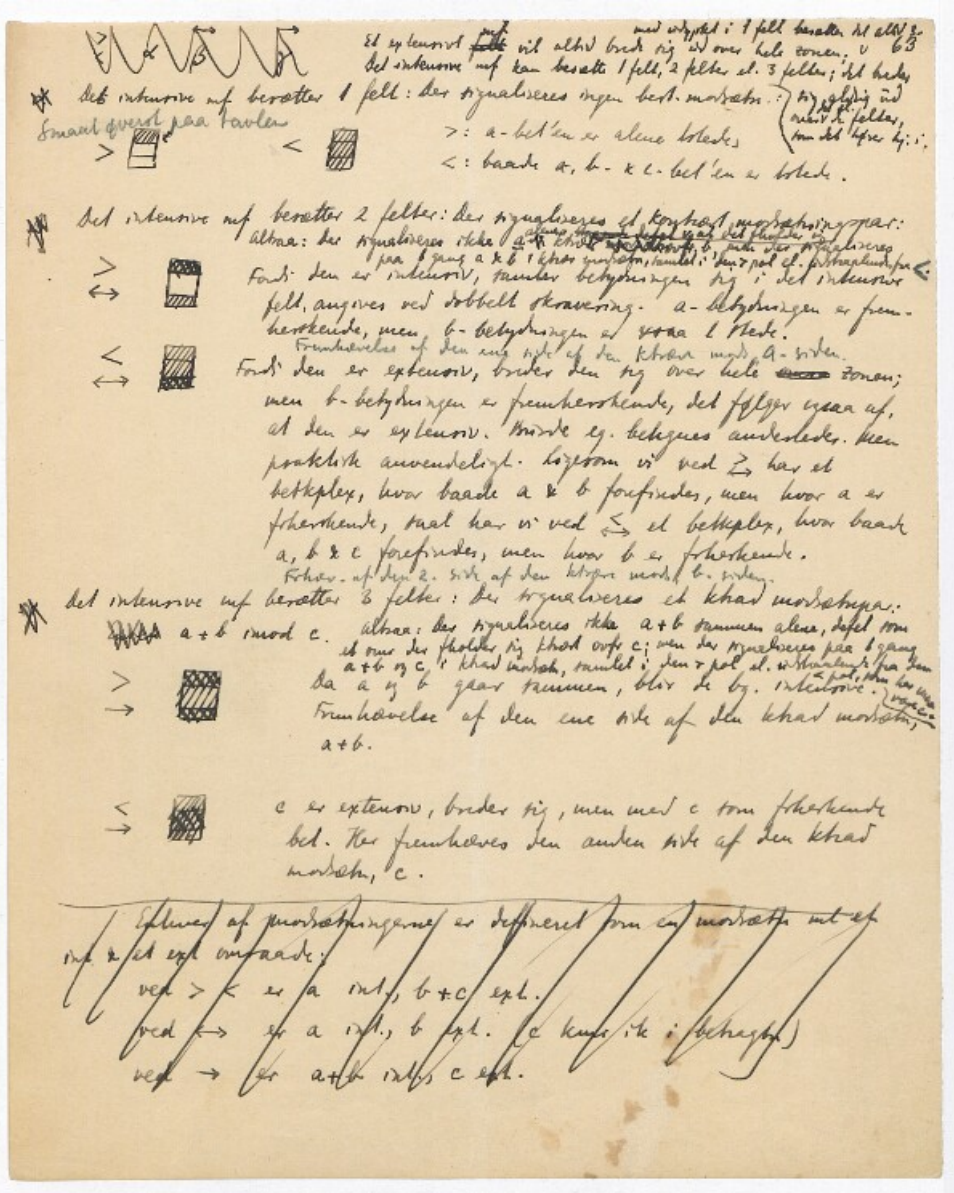 63
med udgpkt i 1 felt besætter det altid
Et extensivt mf vil altid brede sig ud over hele zonen.
Det intensive mf kan besætte 1 felt, 2 felter el. 3 felter; det breder
α β
Det intensive mf besætter 1 felt: Der signaliseres ingen best. modsætn.:
sig aldrig ud
over de felter,
som det hører hj. i.
Smaat øverst paa tavlen
> < >: a-bet'en er alene tilstede,
<: baade a, b- & c-bet'en er tilstede.
Det intensive mf besætter 2 felter: Der signaliseres et kontrært modsætningspar:
altsaa: der signaliseres ikke a men der signaliseres
paa 1 gang a & b i ktrær modsætn, samlet i den ÷ pol el. udstraalende fra <.
> Fordi den er intensiv, samler betydningen sig i det intensive
↔ felt, angives ved dobbelt skravering. a-betydningen er frem-
herskende, men b-betydningen er ogsaa t stede.
Fremhævelse af den ene side af den ktrære mods, a-siden.
< Fordi den er extensiv, breder den sig over hele zonen;
↔ men b-betydningen er fremherskende, det følger ogsaa af,
at den er extensiv. Burde eg. betegnes anderledes. Men
praktisk anvendeligt. Ligesom vi ved >↔ har et
betkplex, hvor baade a & b forefindes, men hvor a er
frherskende, saal har vi ved <↔ et betkplex, hvor baade
a, b & c forefindes, men hvor b er frherskende.
Frhæv. af den 2. side af den ktrære mods, b-siden.
Det intensive mf besætter 3 felter: Der signaliseres et ktrad modsætnpar:
a+b imod c. altsaa: der signaliseres ikke a+b sammen alene, defst som
et omr der fholder sig ktrad ovfr c; men der signaliseres paa 1 gang
a+b og c, i ktrad modsætn, samlet i den ÷ pol el. udstraalende fra den
+ pol, som her maa
være c.
> Da a og b gaar sammen, blir de bg. intensive.
→ Fremhævelse af den ene side af den ktrad modsætn,
a+b.
< c er extensiv, breder sig, men med c som frherskende
→ bet. Her fremhæves den anden side af den ktrad
modsætn, c.
Enhver af modsætningerne er defineret som en modsætn ml et
int & et ext omraade:
ved > < er a int., b+c ext.
ved ↔ er a int., b ext. (c kmr ik i betragtn)
ved → er a+b int., c ext.